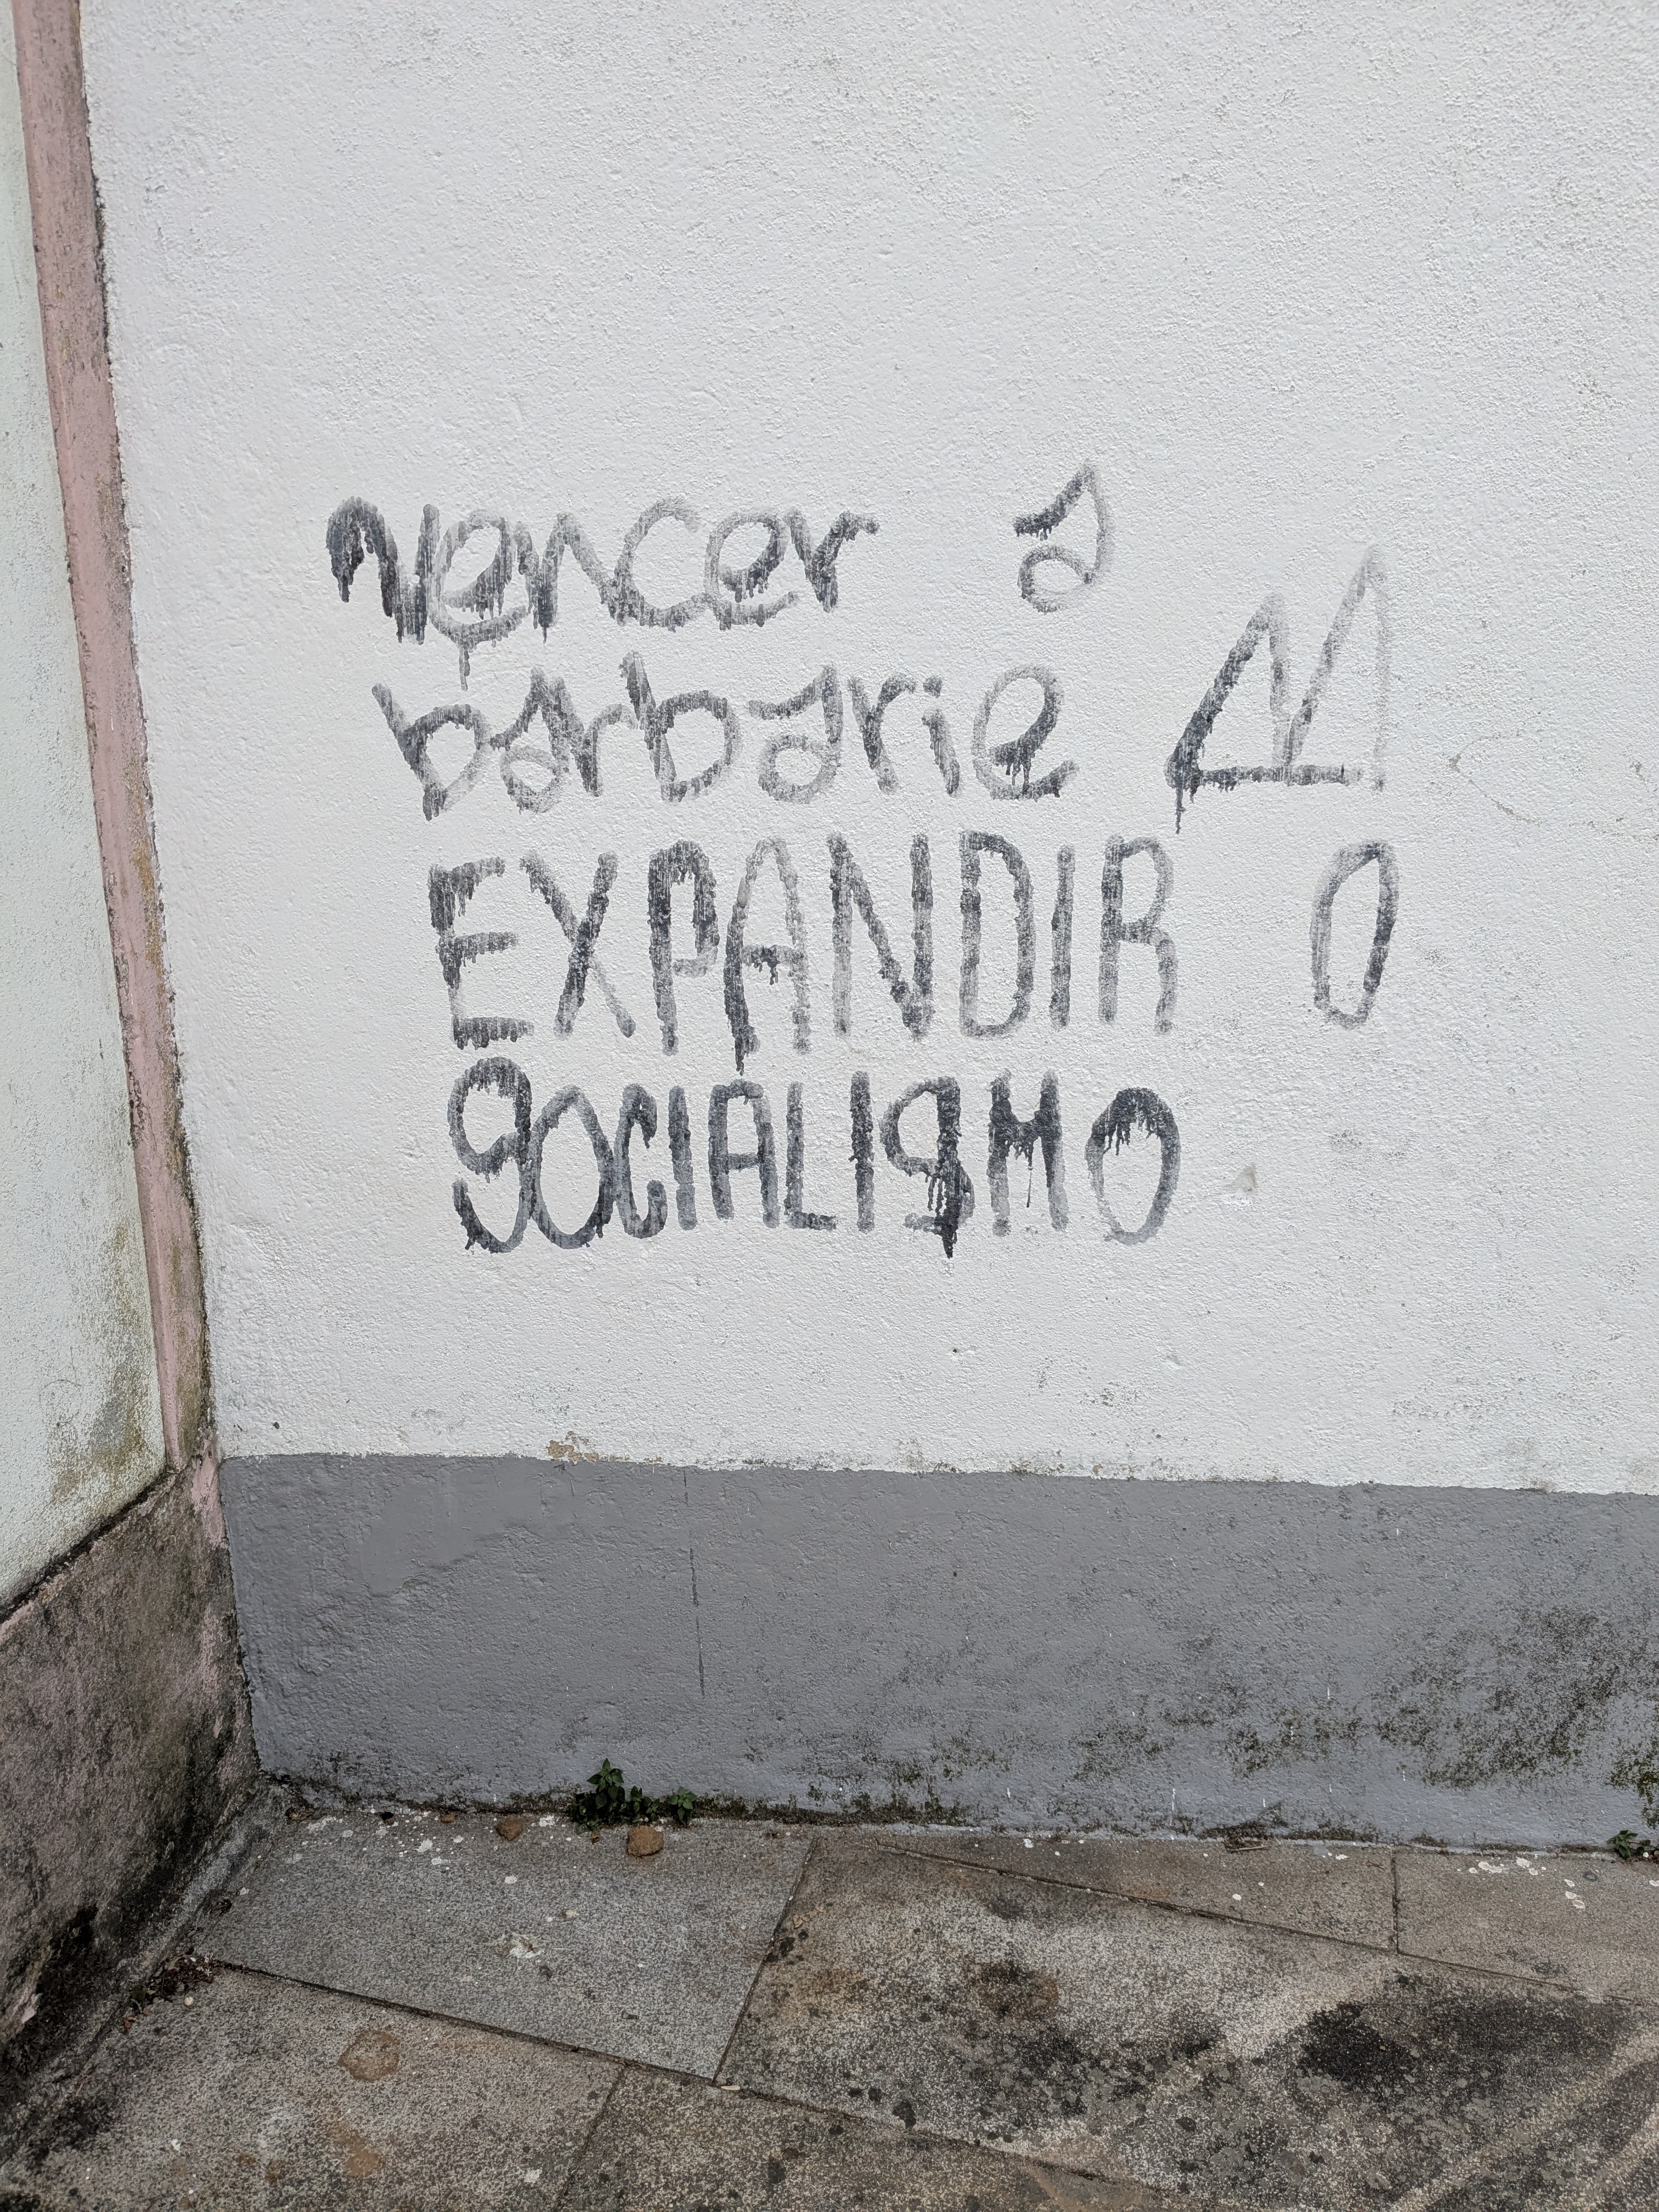 vencer a
barbarie
EXPANDIR O
SOCIALISMO